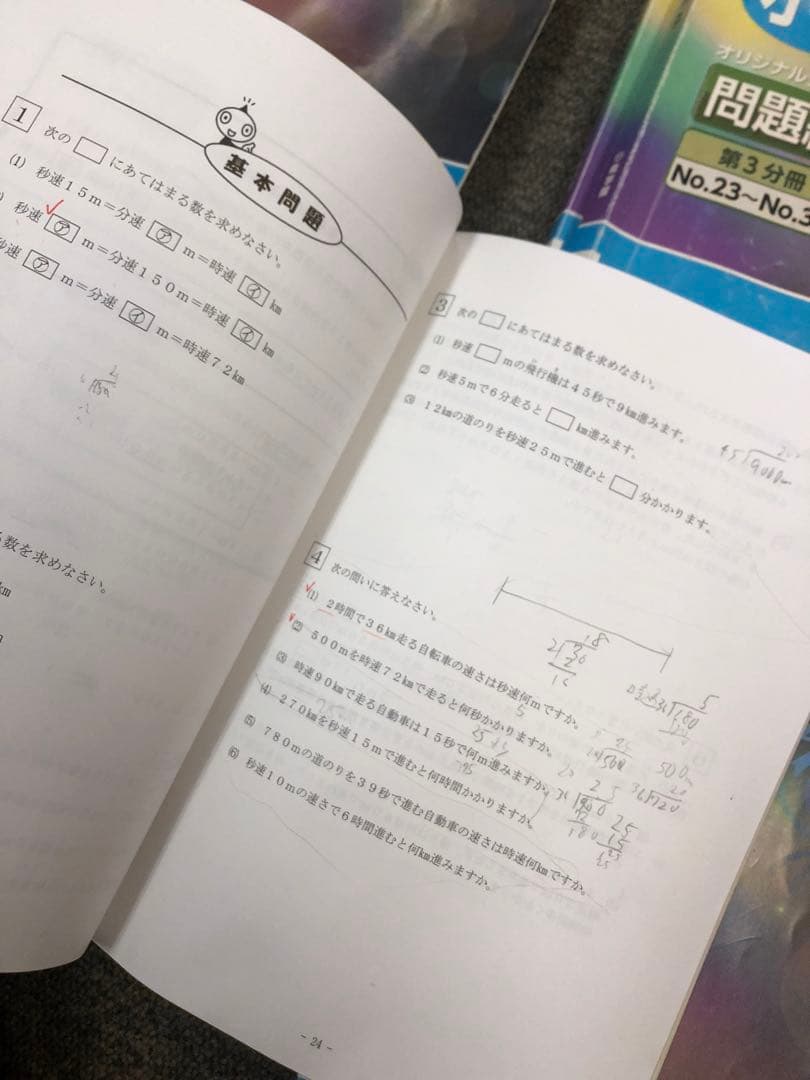 基本問題
1 次の□にあてはまる数を求めなさい。
(1) 秒速15m=分速㋐m=時速㋑km
秒速㋐m=分速150m=時速㋑km
秒速㋐m=分速㋑m=時速72km
数を求めなさい。
km
3 次の□にあてはまる数を求めなさい。
(1) 秒速□mの飛行機は45秒で9km進みます。
(2) 秒速5mで6分走ると□km進みます。
(3) 12kmの道のりを秒速25mで進むと□分かかります。
45 9000m
4 次の問いに答えなさい。
(1) 2時間で36km走る自転車の速さは秒速何mですか。
(2) 500mを時速72kmで走ると何秒かかりますか。
(3) 時速90kmで走る自動車は15秒で何m進みますか。
(4) 270kmを秒速15mで進むと何時間かかりますか。
(5) 780mの道のりを39秒で進む自動車の速さは時速何kmですか。
(6) 秒速10mの速さで6時間進むと何km進みますか。
18
2 36
2
16
5
180
500m
20
36 720
25
900
72
180
25
15
- 24 -
オリジナル
問題
第3分冊
No.23～No.3